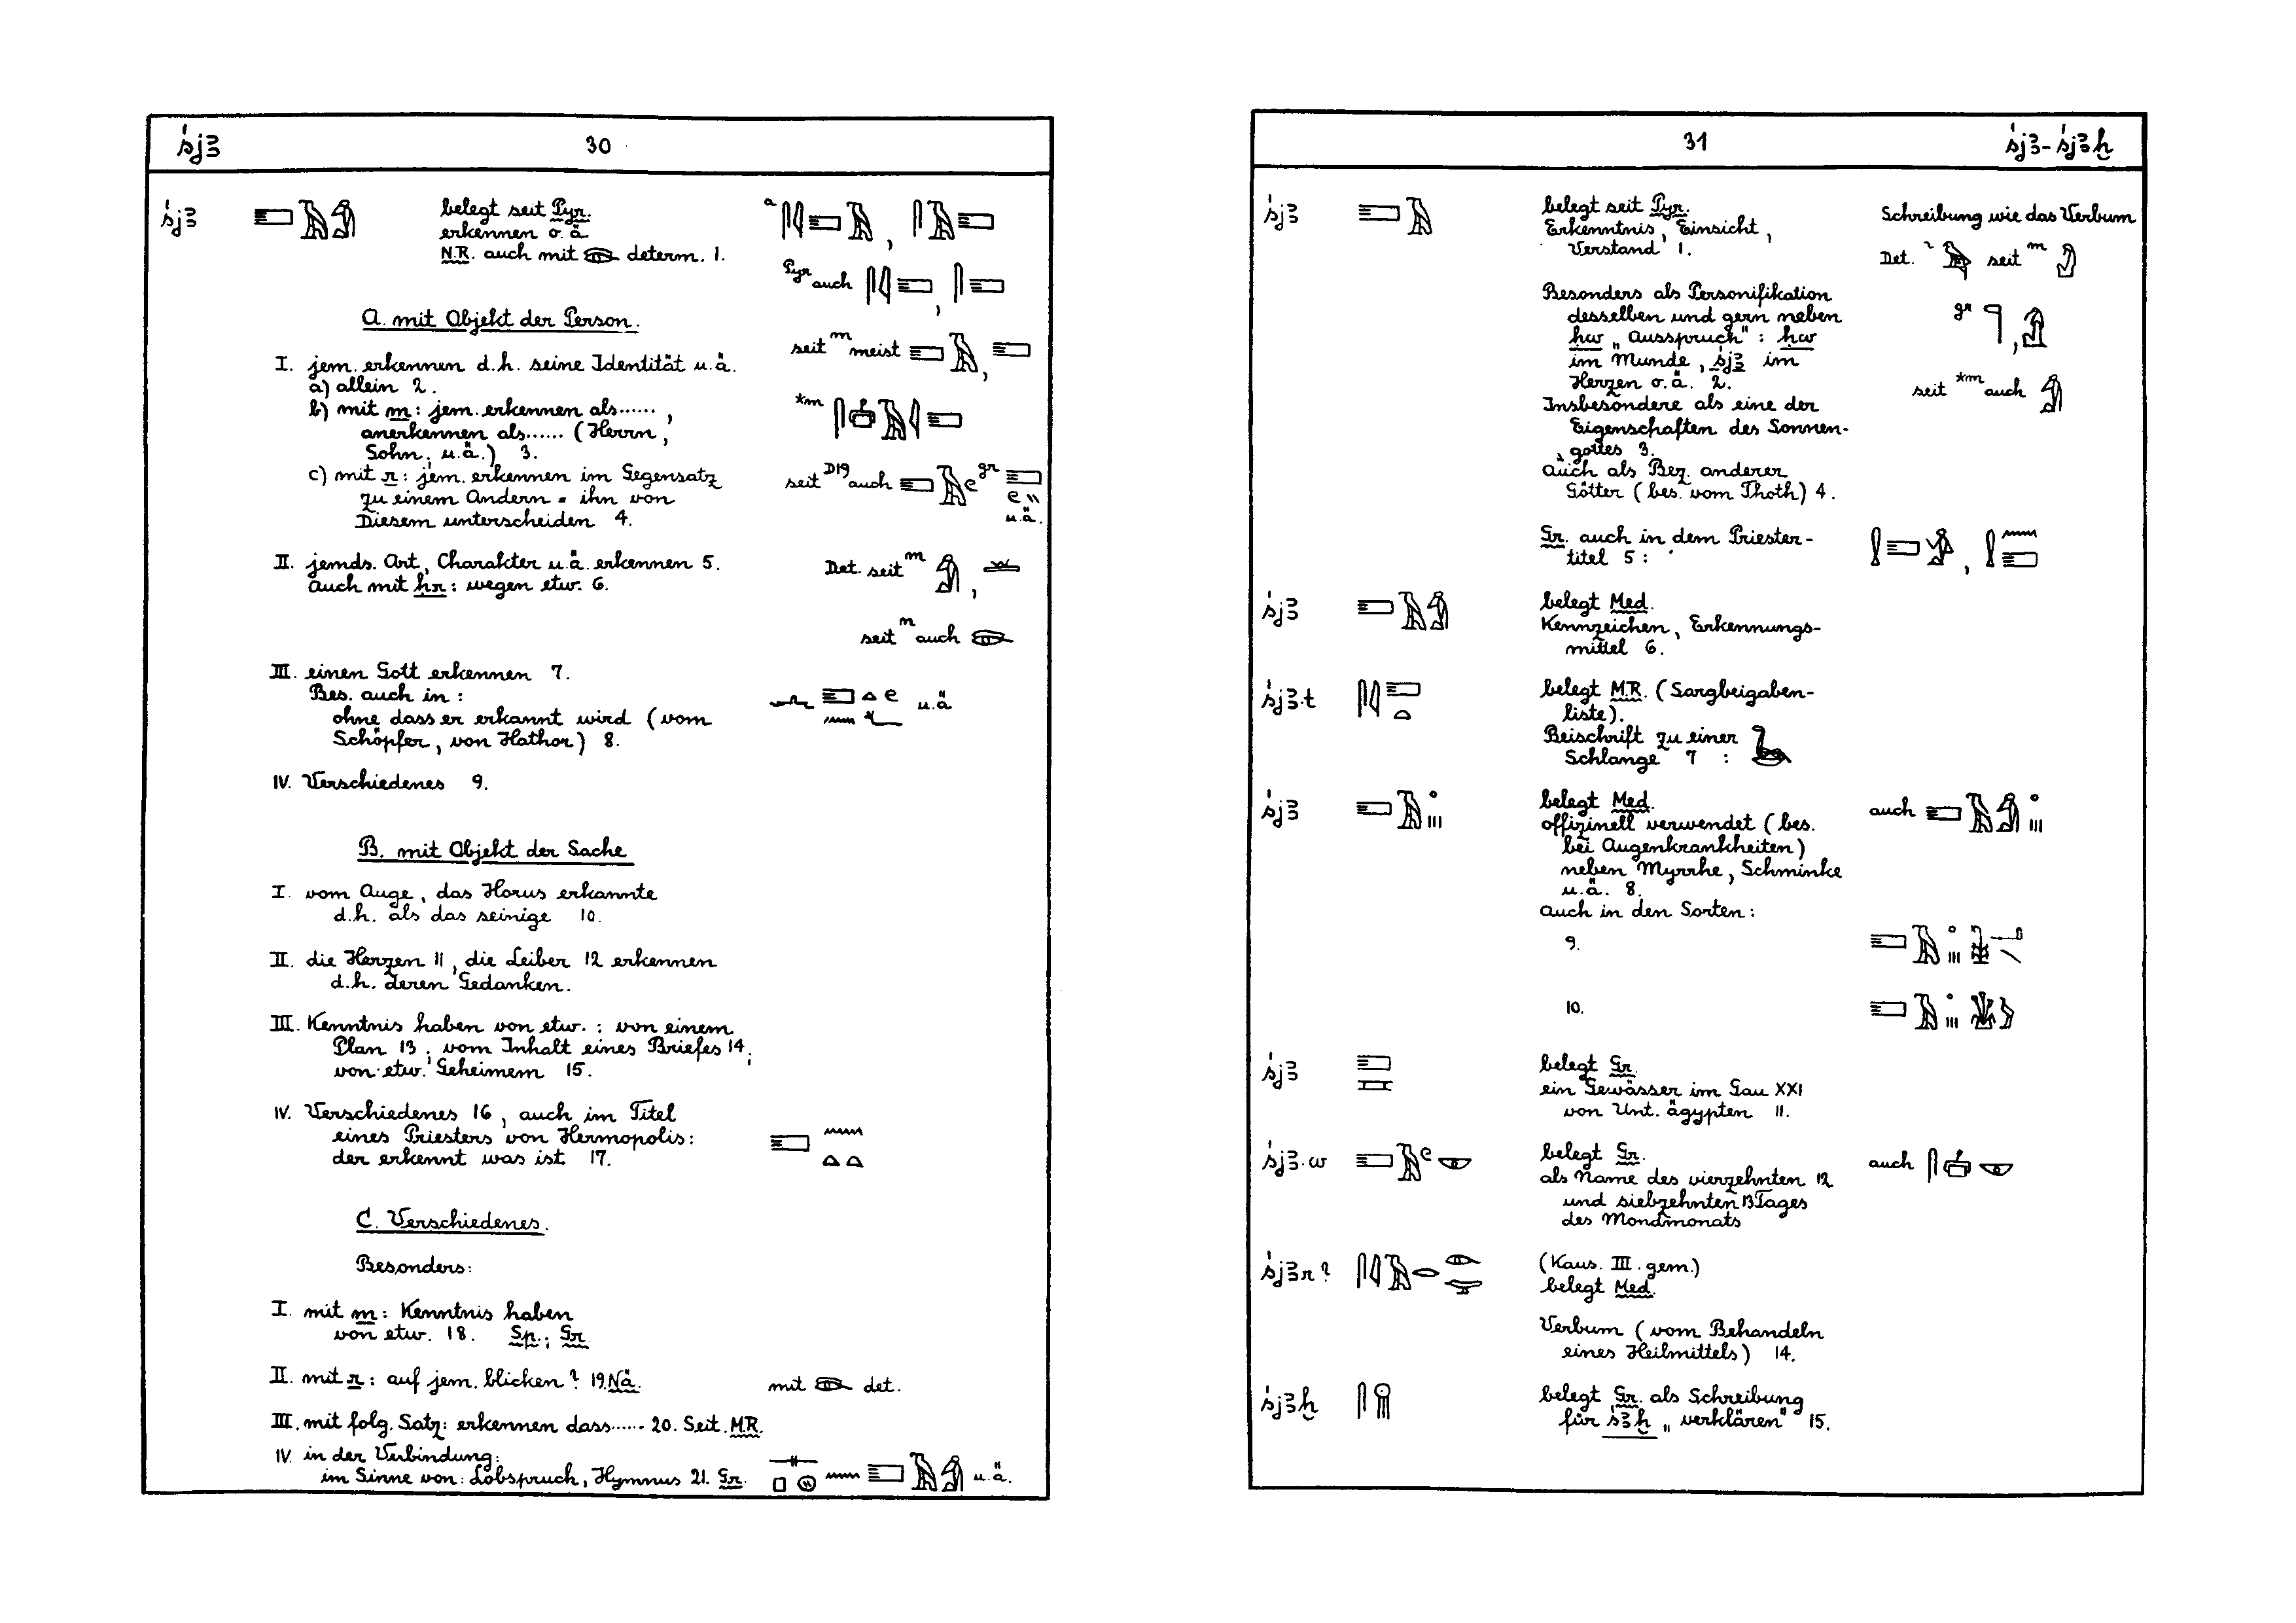 śjꜣ 30
śjꜣ belegt seit Pyr.
erkennen o. ä.
N.R. auch mit determ. 1.
a ,
Pyr auch ,
A. mit Objekt der Person.
seit m meist ,
I. jem. erkennen d.h. seine Identität u.ä.
a) allein 2.
b) mit m: jem. erkennen als...... ,
anerkennen als...... (Herrn,
Sohn, u.ä.) 3.
*m
c) mit r: jem. erkennen im Gegensatz
zu einem Andern = ihn von
Diesem unterscheiden 4.
seit D19 auch gr
u.ä.
II. jemds. Art, Charakter u.ä. erkennen 5.
auch mit ḥr: wegen etw. 6.
Det. seit m ,
seit n auch
III. einen Gott erkennen 7.
Bes. auch in:
ohne dass er erkannt wird (vom
Schöpfer, von Hathor) 8.
u.ä
IV. Verschiedenes 9.
B. mit Objekt der Sache
I. vom Auge, das Horus erkannte
d.h. als das seinige 10.
II. die Herzen 11, die Leiber 12 erkennen
d.h. deren Gedanken.
III. Kenntnis haben von etw.: von einem
Plan 13; vom Inhalt eines Briefes 14;
von etw. Geheimem 15.
IV. Verschiedenes 16, auch im Titel
eines Priesters von Hermopolis:
der erkennt was ist 17.
C. Verschiedenes.
Besonders:
I. mit m: Kenntnis haben
von etw. 18. Sp.; Gr.
II. mit r: auf jem. blicken? 19. Nä. mit det.
III. mit folg. Satz: erkennen dass...... 20. Seit M.R.
IV. in der Verbindung:
im Sinne von: Lobspruch, Hymnus 21. Gr. u.ä.
31 śjꜣ - śjꜣḫ
śjꜣ belegt seit Pyr.
Erkenntnis, Einsicht,
Verstand 1.
Schreibung wie das Verbum
Det. seit m
Besonders als Personifikation
desselben und gern neben
ḥw „Ausspruch": ḥw
im Munde, śjꜣ im
Herzen o.ä. 2.
gr ,
seit *m auch
Insbesondere als eine der
Eigenschaften des Sonnen-
gottes 3.
Auch als Bez. anderer
Götter (bes. vom Thoth) 4.
Gr. auch in dem Priester-
titel 5: ,
śjꜣ belegt Med.
Kennzeichen, Erkennungs-
mittel 6.
śjꜣ.t belegt M.R. (Sargbeigaben-
liste).
Beischrift zu einer
Schlange 7 :
śjꜣ belegt Med. auch
offizinell verwendet (bes.
bei Augenkrankheiten)
neben Myrrhe, Schminke
u.ä. 8.
auch in den Sorten:
9.
10.
śjꜣ belegt Gr.
ein Gewässer im Gau XXI
von Unt. ägypten 11.
śjꜣ.w belegt Gr. auch
als Name des vierzehnten 12
und siebzehnten 13 Tages
des Mondmonats
śjꜣr? (Kaus. III. gem.)
belegt Med.
Verbum (vom Behandeln
eines Heilmittels) 14.
śjꜣḫ belegt Gr. als Schreibung
für śꜣḫ „verklären" 15.